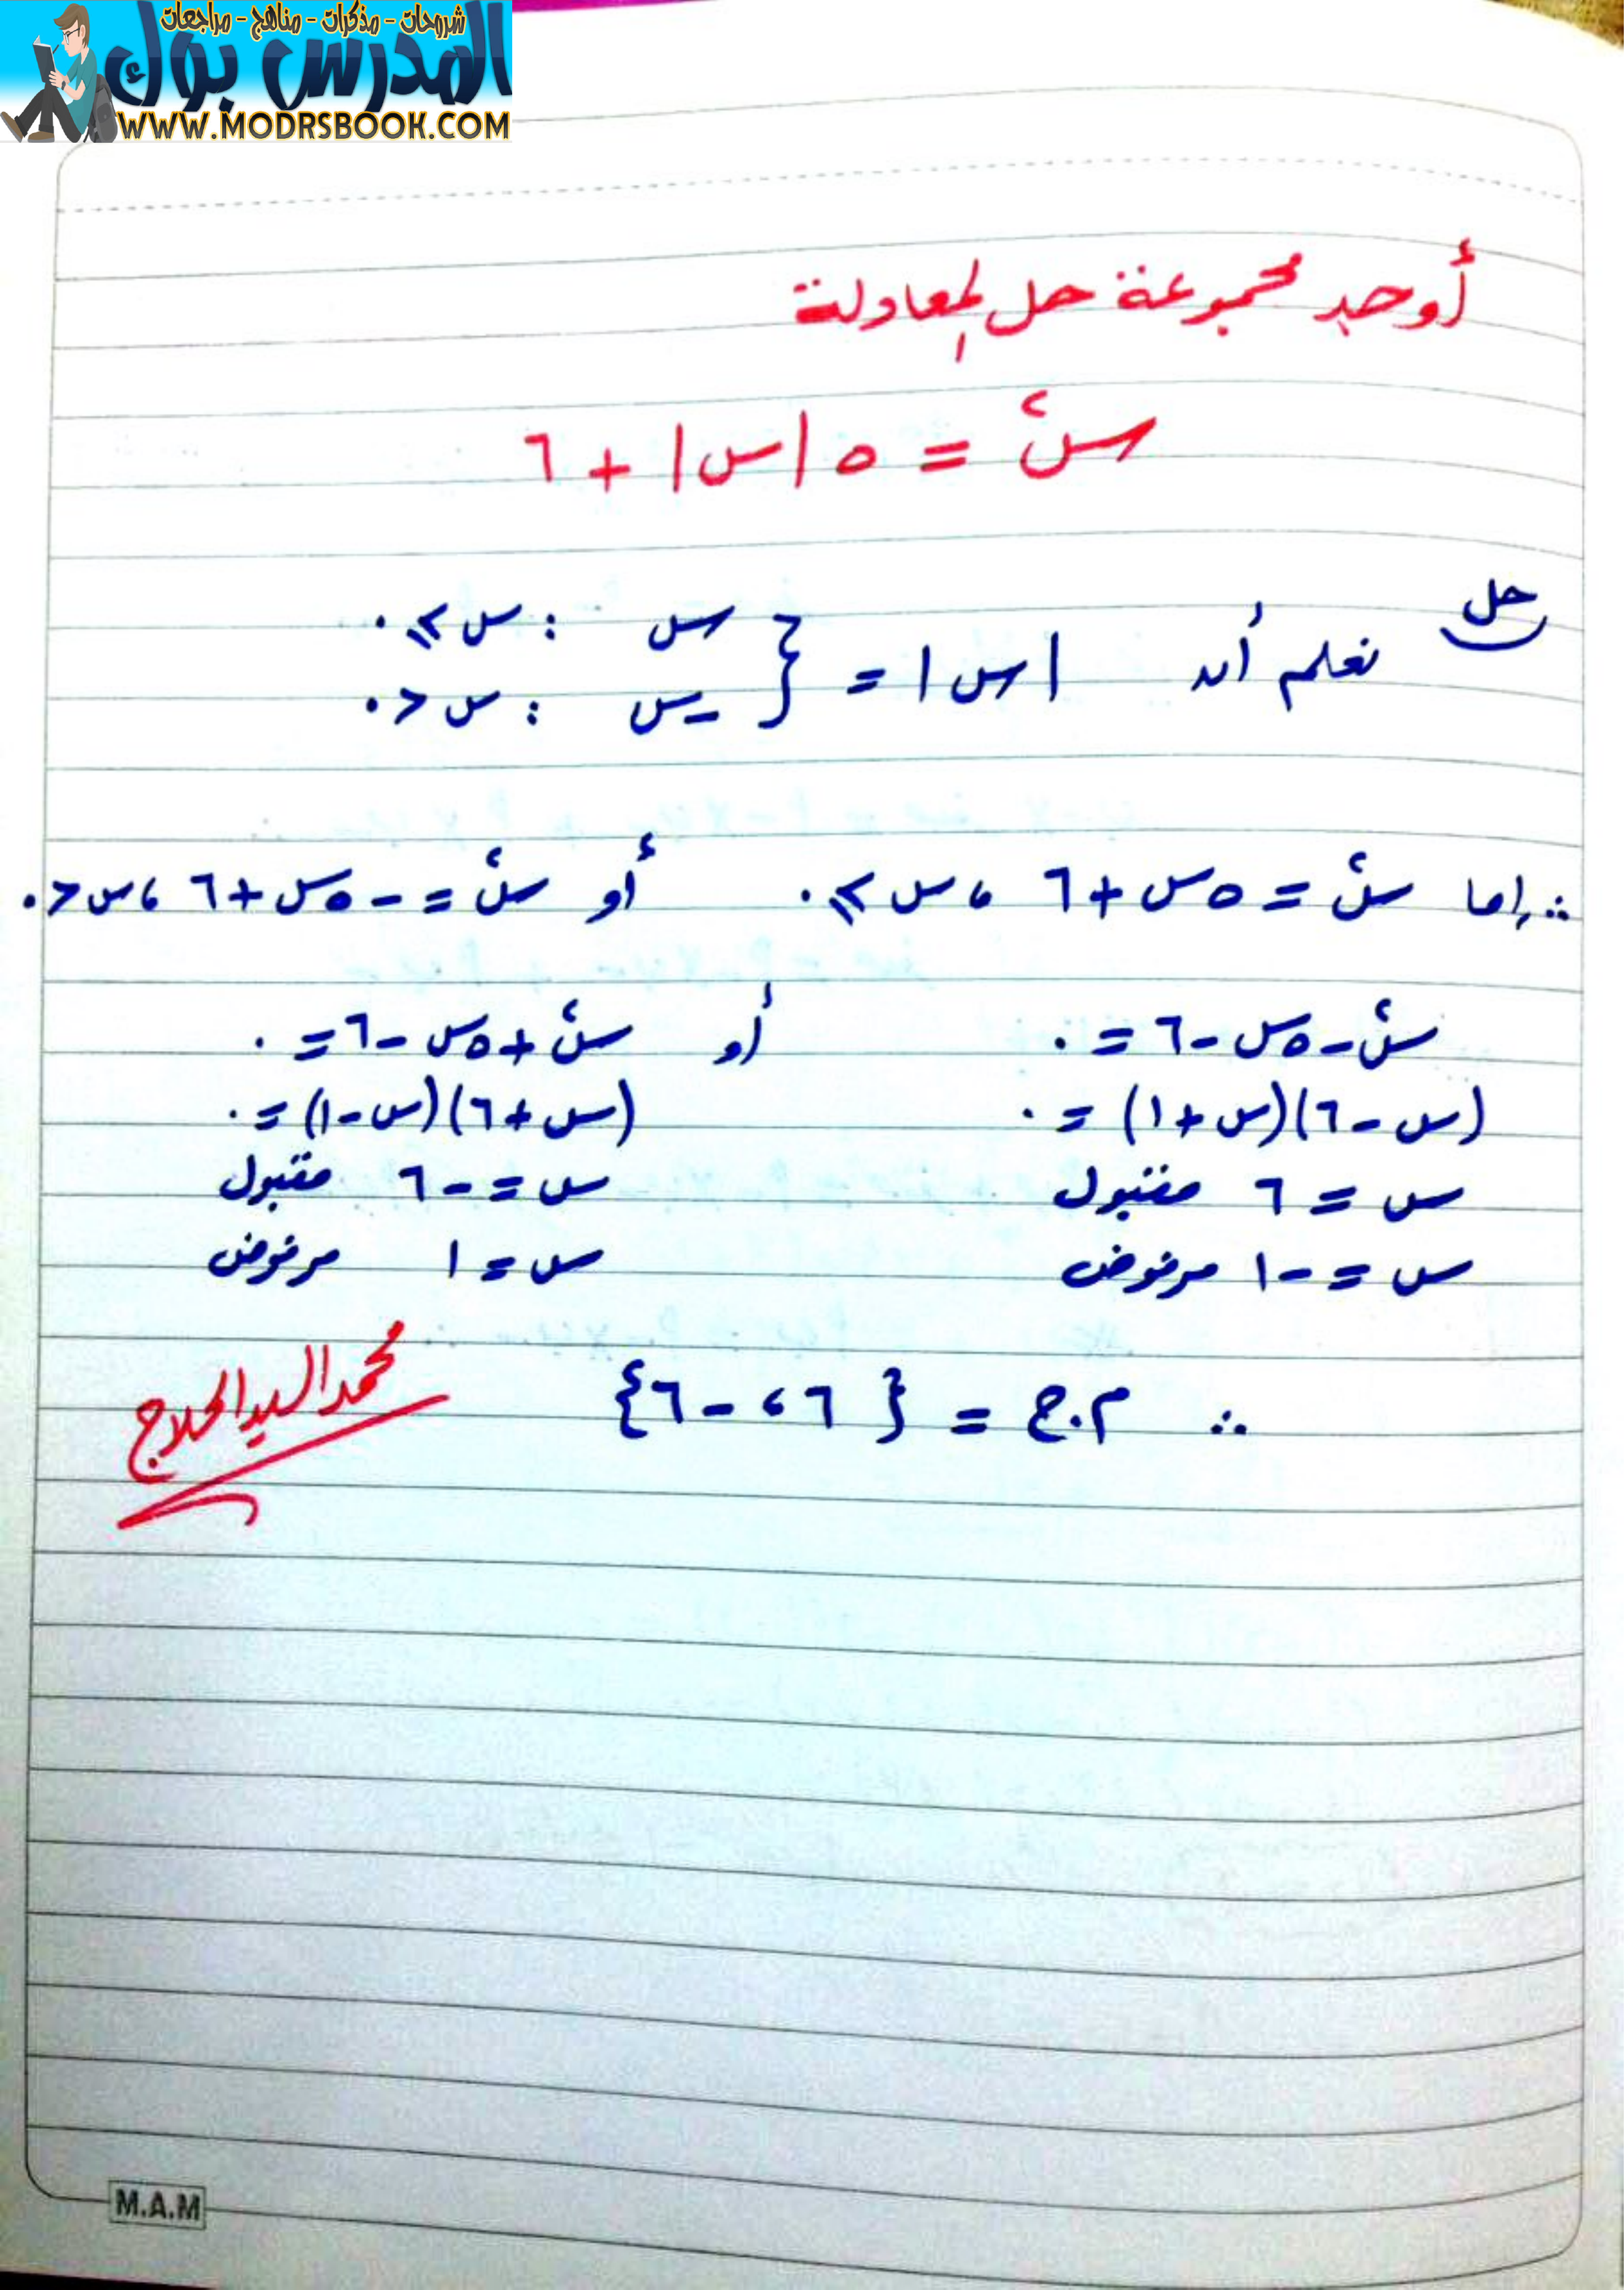 شروحات - مذكرات - مناهج - مراجعات
المدرس بوك
WWW.MODRSBOOK.COM
أوجد مجموعة حل المعادلة
س٢ = ٥ |س| + ٦
حل
نعلم أن |س| = { س : س ≥ ٠
-س : س < ٠
∴ إما س٢ = ٥س + ٦ ، س ≥ ٠ أو س٢ = -٥س + ٦ ، س < ٠
س٢ - ٥س - ٦ = ٠ أو س٢ + ٥س - ٦ = ٠
(س - ٦)(س + ١) = ٠ (س + ٦)(س - ١) = ٠
س = ٦ مقبول س = -٦ مقبول
س = -١ مرفوض س = ١ مرفوض
∴ م.ح = {٦ ، -٦}
محمد السيد الحلاج
M.A.M